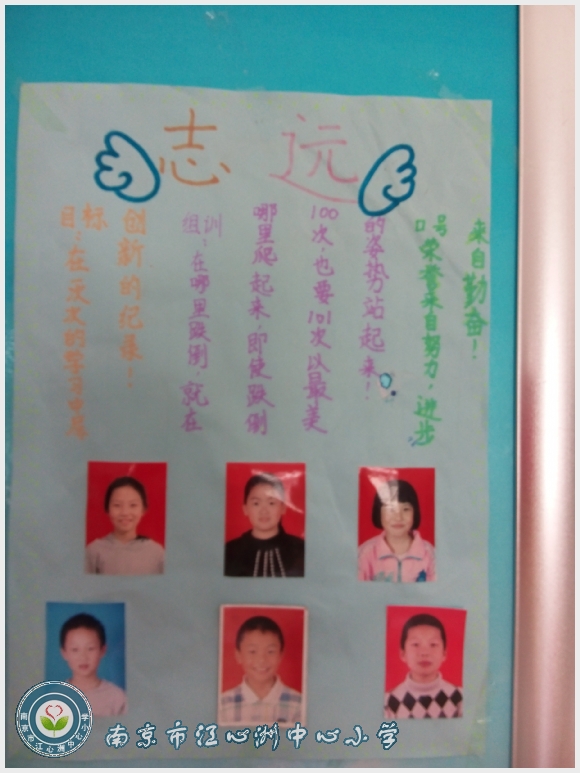 志远
目标：在一次次的学习中有
创新的纪录！
组训：在哪里跌倒，就在
哪里爬起来，即使跌倒
100次，也要101次以最美
的姿势站起来！
口号：荣誉来自努力，进步
来自勤奋！
南京市江心洲中心小学
南京市江心洲中心小学